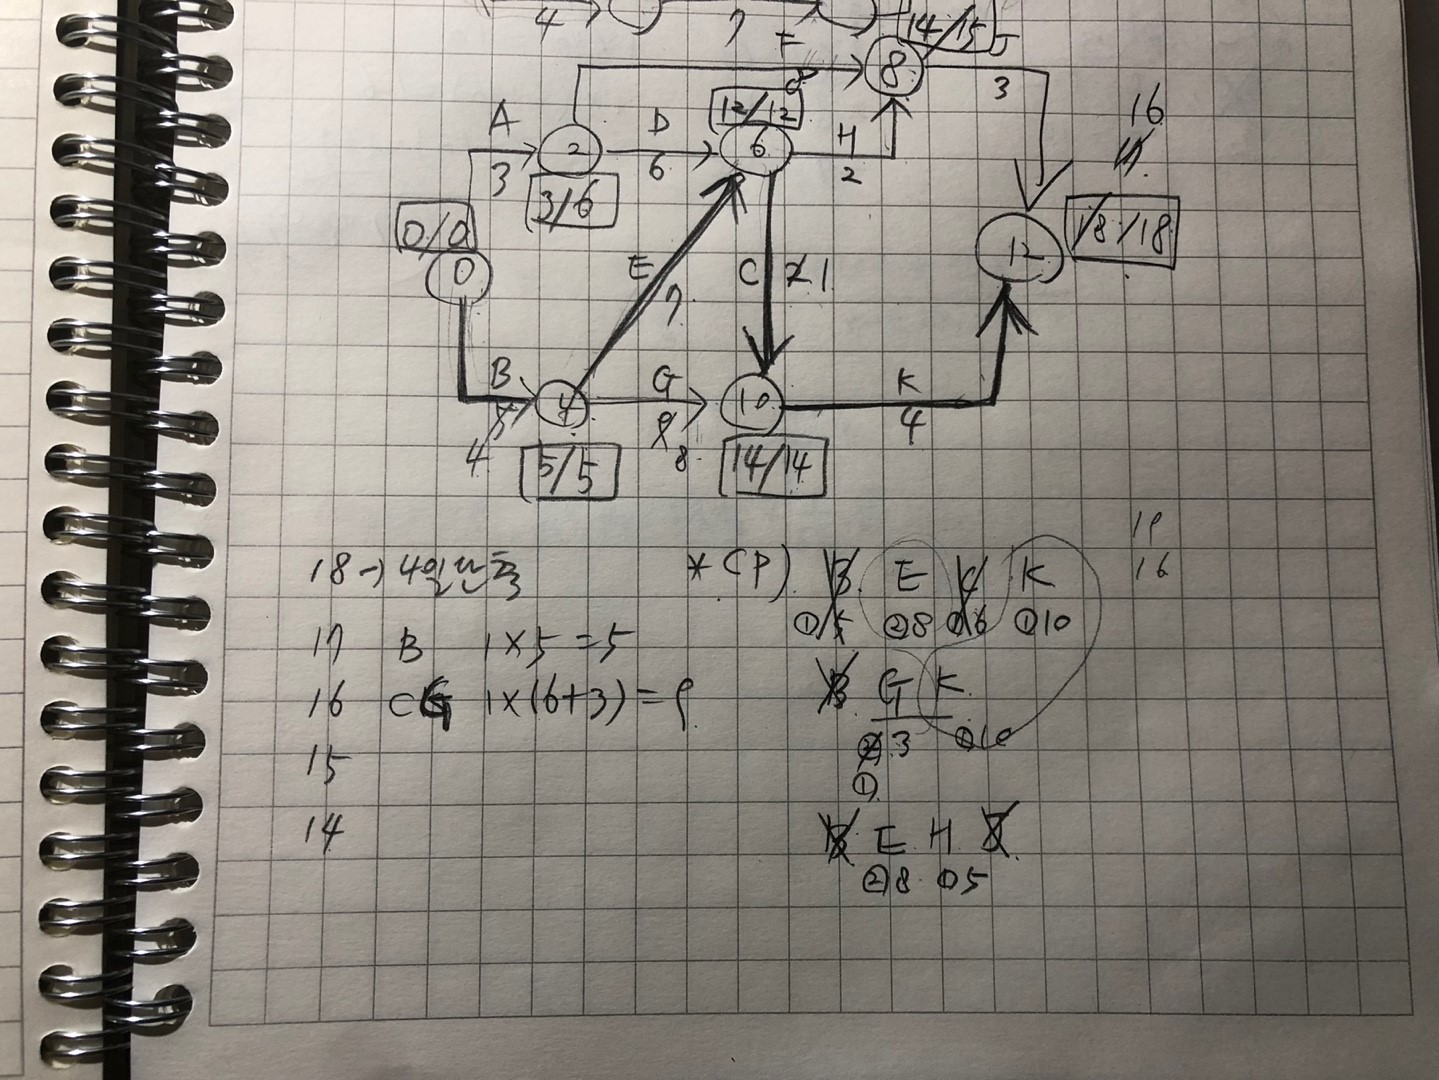 4 7 14/15 5
F
8 8 3
12/12 16
A D H
2 6
3 6 2
3/6
0/0
18/18
0 E C 2 1 12
7
B G K
5 4 9 10 4
4 8
5/5 14/14
19
18→4일단축 * CP) B E C K 16
①5 ②8 ①6 ①10
17 B 1×5=5
16 CG 1×(6+3)=9 B G K
②3 ①10
15 ①
14 B E H
②8 ①5